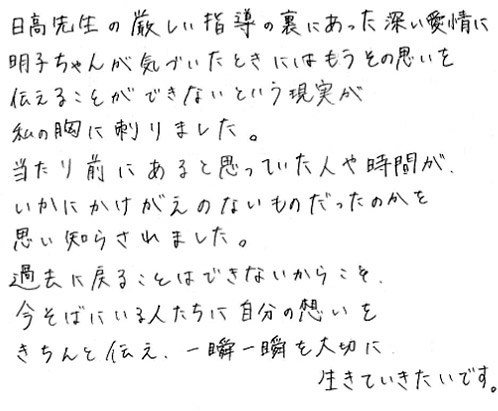 日高先生の厳しい指導の裏にあった深い愛情に
明子ちゃんが気づいたときにはもうその思いを
伝えることができないという現実が
私の胸に刺りました。
当たり前にあると思っていた人や時間が、
いかにかけがえのないものだったのかを
思い知らされました。
過去に戻ることはできないからこそ、
今そばにいる人たちに自分の想いを
きちんと伝え、一瞬一瞬を大切に
生きていきたいです。